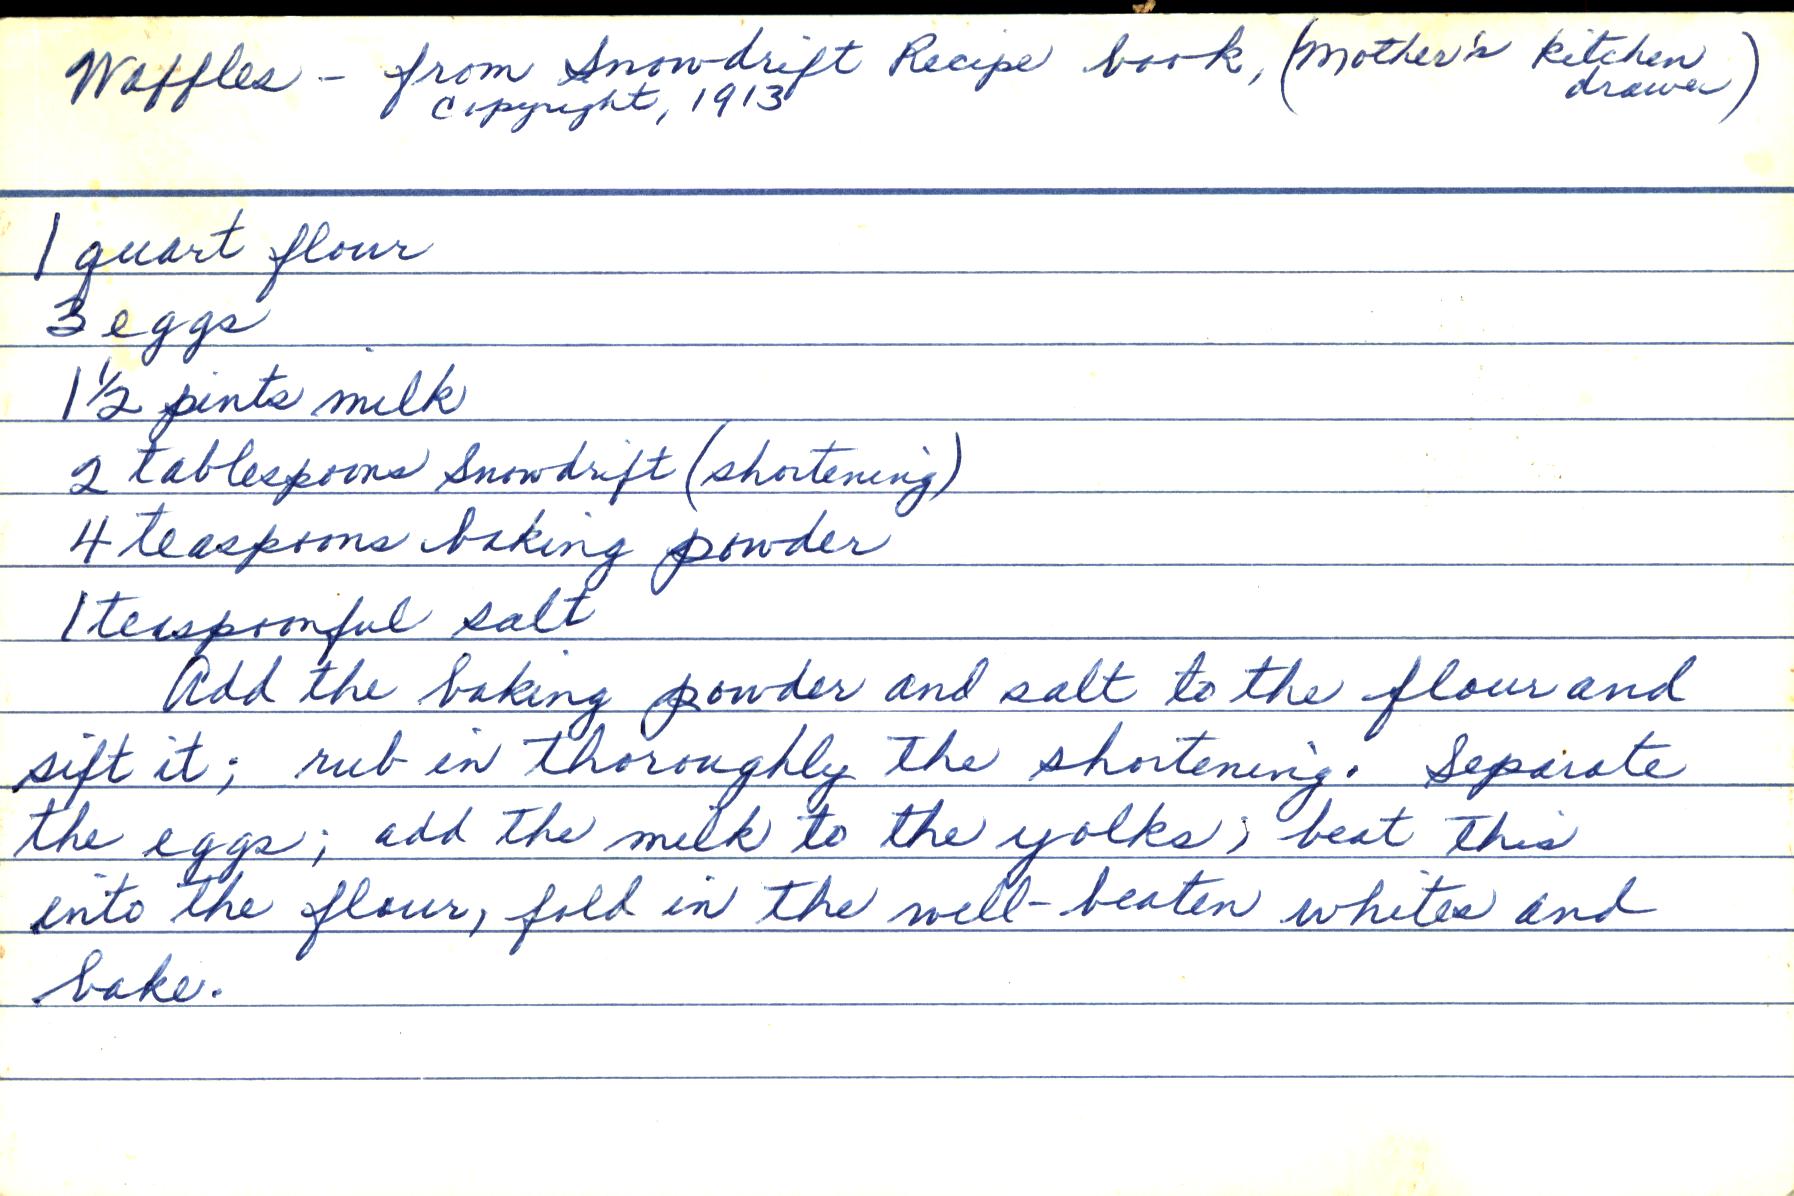 Waffles - from Snowdrift Recipe book, (Mother's kitchen drawer)
Copyright, 1913
1 quart flour
3 eggs
1 1/2 pints milk
2 tablespoons Snowdrift (shortening)
4 teaspoons baking powder
1 teaspoonful salt
Add the baking powder and salt to the flour and
sift it; rub in thoroughly the shortening. Separate
the eggs; add the milk to the yolks; beat this
into the flour, fold in the well-beaten whites and
bake.